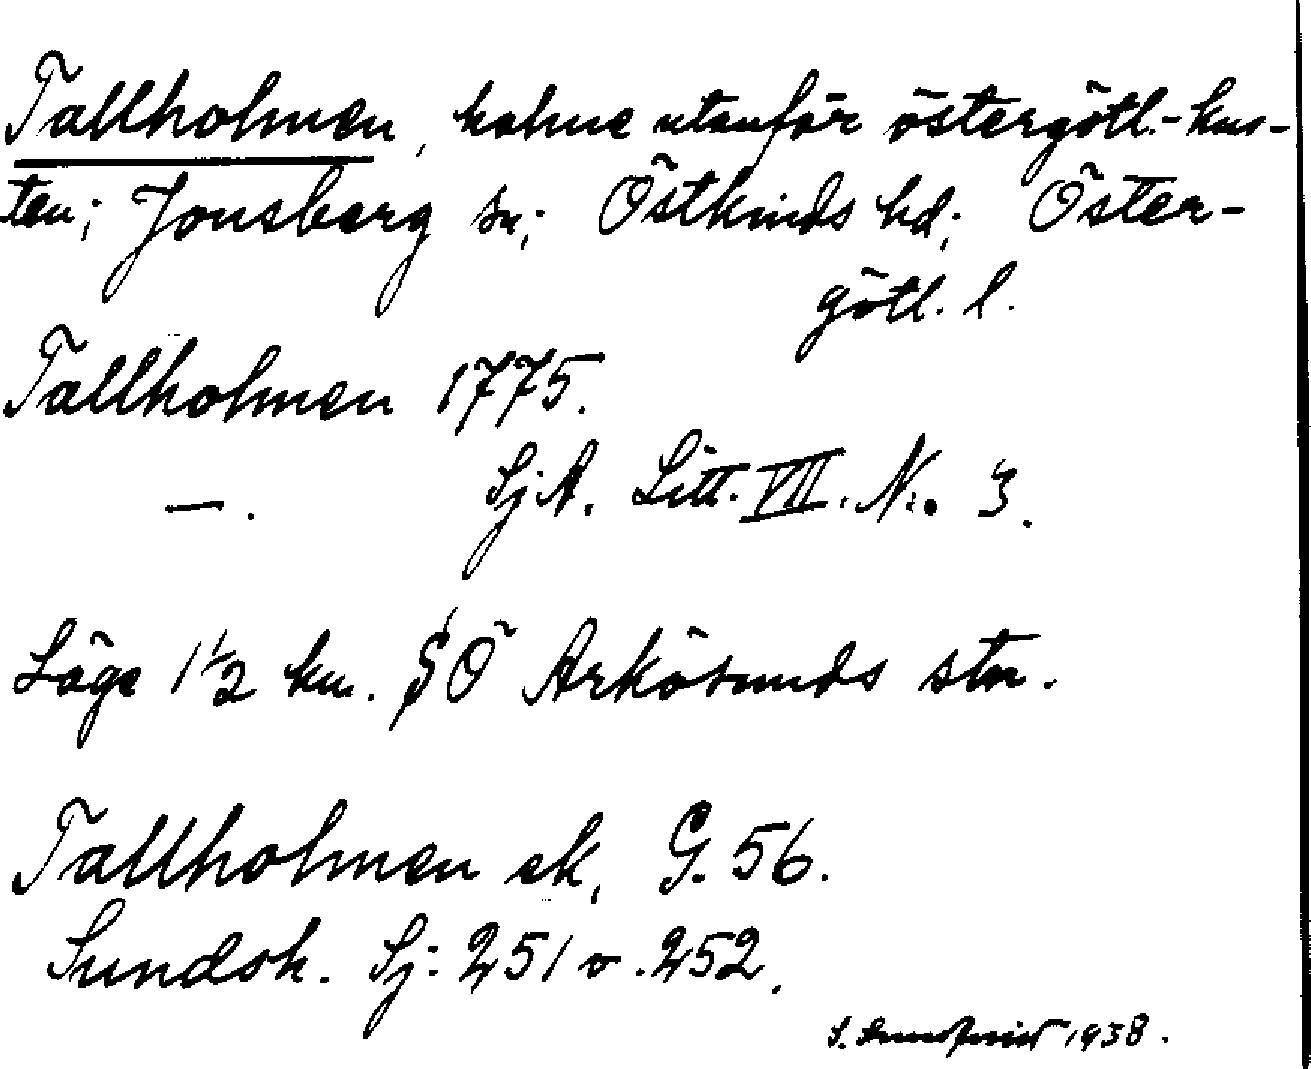 Tallholmen, holme utanför östergötl.-kus-
ten; Jonsberg sn; Östkinds hd; Öster-
götl. l.
Tallholmen 1775.
—. SjA. Litt. VII. N:o 3.
Läge 1 1/2 km. SÖ Arkösunds stn.
Tallholmen ek, G. 56.
Sundsk. Sj: 251 o. 252.
S. 1938.